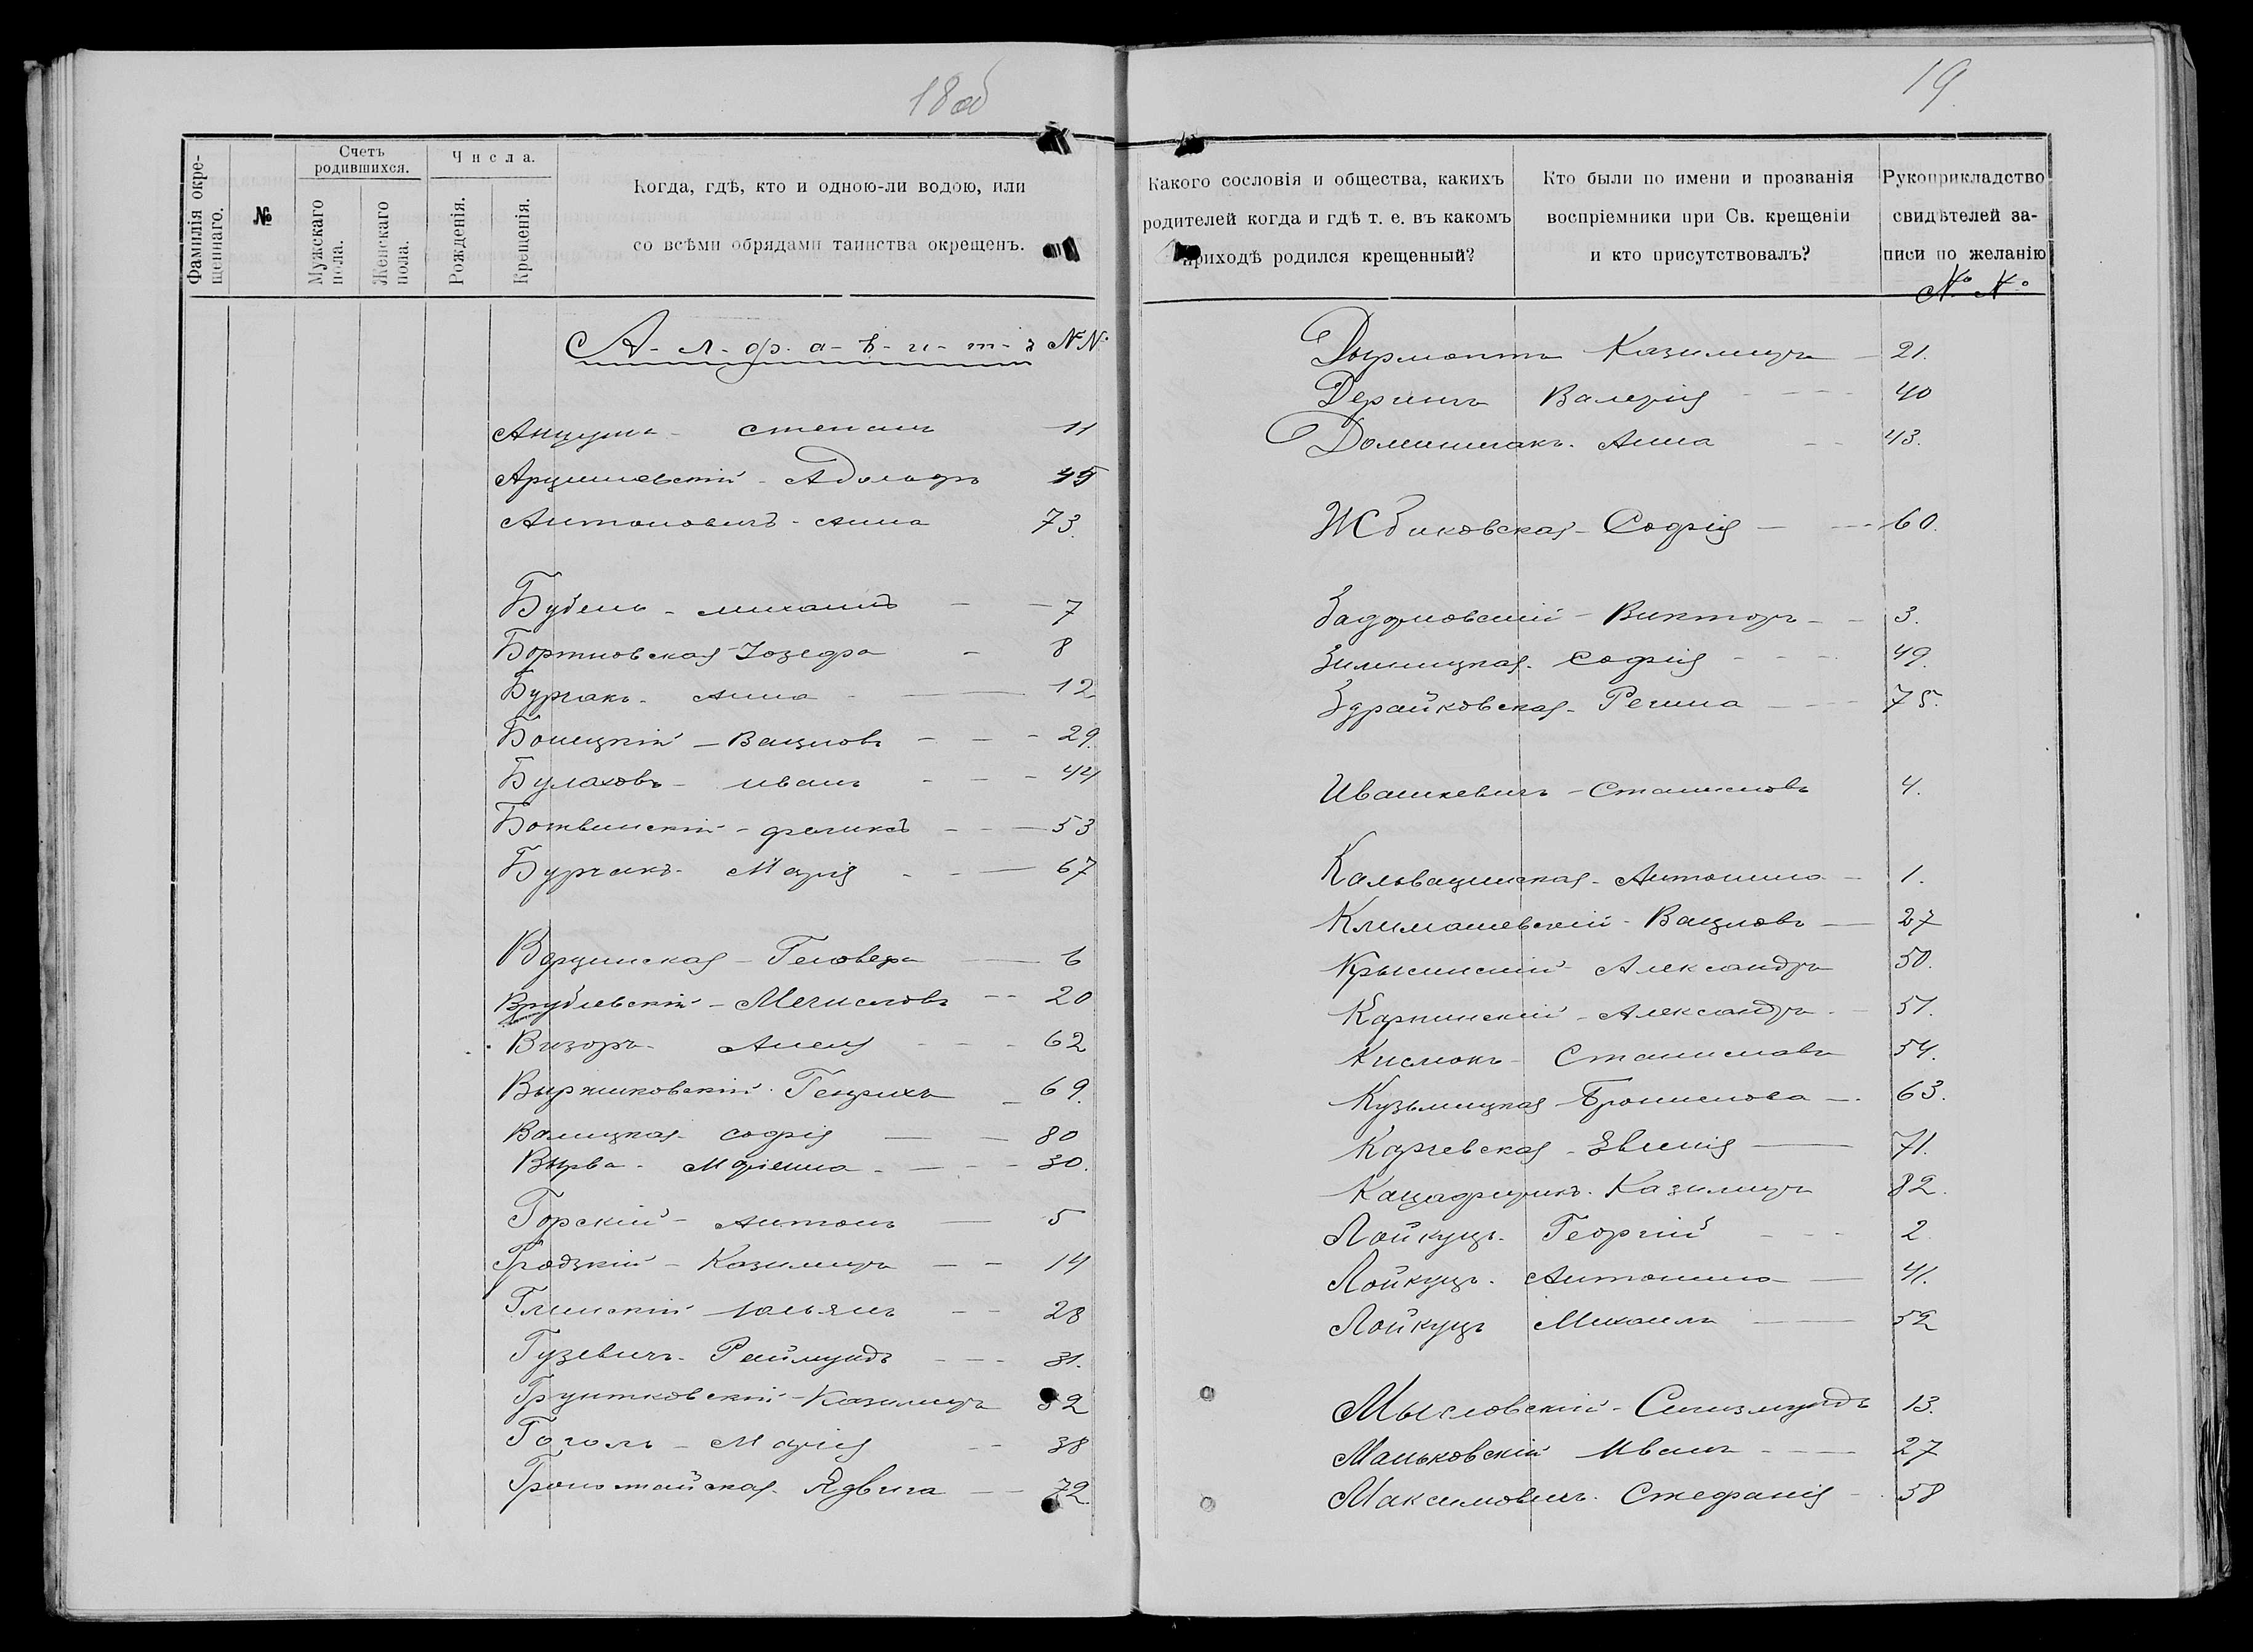 18 об
Фамилія окрещеннаго.
№
Счетъ родившихся.
Мужскаго пола.
Женскаго пола.
Числа.
Рожденія.
Крещенія.
Когда, гдѣ, кто и одною-ли водою, или
со всѣми обрядами таинства окрещенъ.
А-л-ф-а-в-и-т-ъ №№
Анцута - Степанъ 11
Арцишевскій - Адольфъ 45
Антоновичъ - Анна 73.
Бубень - Михаилъ - - 7
Бортновская - Іозефа - 8
Бурчакъ - Анна - 12
Бонецкій - Вацлавъ - - - 29.
Булаховъ - Иванъ - - - 44
Ботвинскій - Феликсъ - - 53
Бурчакъ - Марія - - 67
Ворцинская - Геновефа - 6
Врублевскій - Мечиславъ - - 20
Визоръ - Анеля - - - 62
Выржиковскій - Генрихъ - 69.
Валицкая - Софія - - 80
Вырва - Маріанна - - - 30.
Горскій - Антонъ - 5
Гродзкій - Казимиръ - - 14
Глинскій Юльянъ - - 28
Гузевичъ - Раймундъ - - - 31.
Грунтковскій - Казимиръ 32
Гоголь - Марія - - 38
Гроностайская - Ядвига - - 72
19.
Какого сословія и общества, какихъ
родителей когда и гдѣ т. е. въ какомъ
приходѣ родился крещенный?
Кто были по имени и прозванія
воспріемники при Св. крещеніи
и кто присутствовалъ?
Рукоприкладство
свидѣтелей за-
писи по желанію
№ №
Дырмонтъ Казимиръ - 21.
Деринъ Валерія - - - - 40
Доминикъ - Анна - - 43.
Жбиковская - Софія - - - 60.
Задарновскій - Викторъ - - 3.
Зилиницкая - Софія - - - - 49.
Здрайковская - Регина - - - 75.
Ивашкевичъ - Станиславъ 4.
Кальвацинская - Антонина - 1.
Климашевскій - Вацлавъ - 27
Крысинскій - Александръ 50.
Карпинскій - Александръ - - 51.
Кислюкъ - Станиславъ 54.
Кузьмицкая - Бронислава - . 63.
Карчевская - Евгенія - 71.
Казимиръ 82.
Лойкуцъ - Георгій - - - 2
Лойкуцъ - Антонина - 41.
Лойкуцъ Михаилъ - 52
Мысловскій - Сигизмундъ 13.
Маньковскій Иванъ - - 27
Максимовичъ - Стефанія - 58